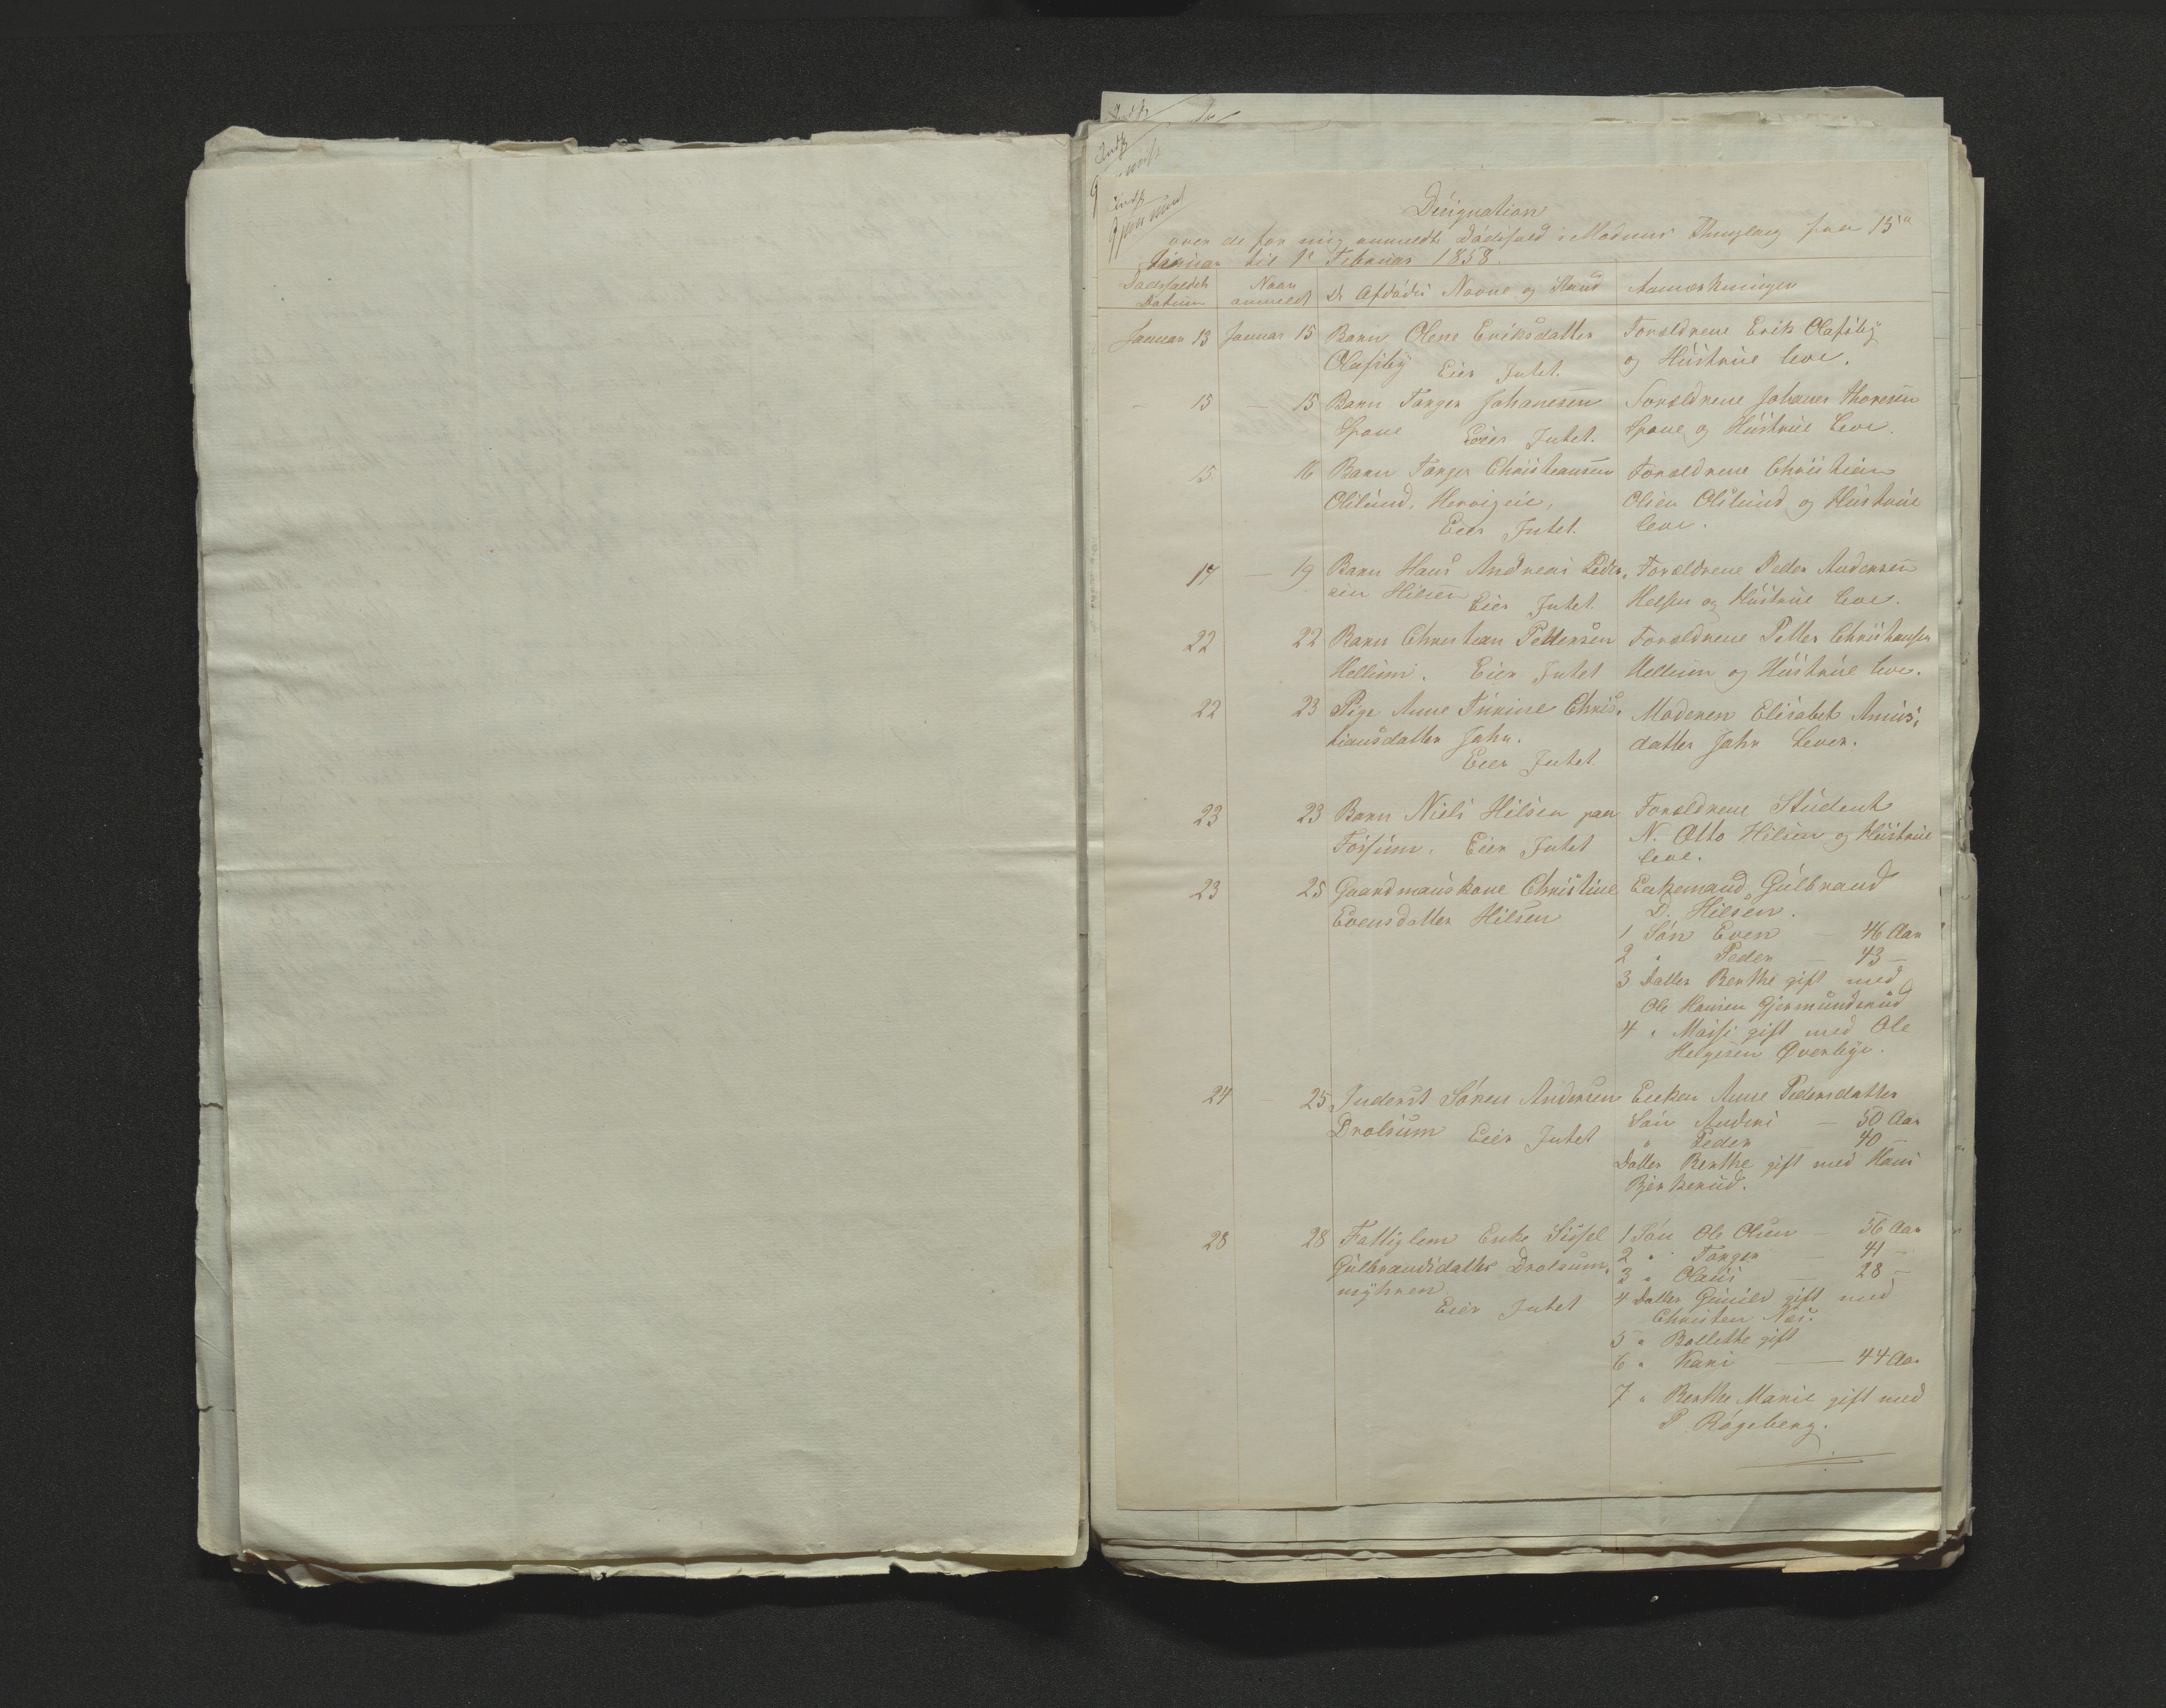 Designation
over de for mig anmeldte Dødsfald i Modums Thinglaug fra 15de
Januar til 1e Februar 1858.
Dødsfaldets Datum | Naar anmeldt | De Afdødes Navne og Stand | Anmærkninger
Januar 13 | Januar 15 | Barn Olene Eriksdatter | Forældrene Erik Olafsby
Olafsby Eier Intet. | og Hustrue leve.
– 15 | – 15 | Barn Torger Johanesen | Forældrene Johanes Thoresen
Spone Eier Intet. | Spone og Hustrue leve.
15 | 16 | Barn Torger Christiansen | Forældrene Christian
Olslund, Hervigeie, | Olsen Olslund og Hustrue
Eier Intet. | leve.
17 | – 19 | Barn Hans Andreas Peder- | Forældrene Peder Andersen
sen Hilsen Eier Intet | Helsen og Hustrue leve.
22 | 22 | Barn Christian Pettersen | Forældrene Petter Christiansen
Hellum. Eier Intet | Hellum og Hustrue leve.
22 | 23 | Pige Anne Turine Chris- | Moderen Elisabet Amus-
tiansdatter Jahr. | datter Jahr lever.
Eier Intet
23 | 23 | Barn Niels Hilsen paa | Forældrene Student
Fossum. Eier Intet | N. Otto Hilsen og Hustrue
leve.
23 | 25 | Gaardmandskone Christine | Enkemand Gulbrand
Evensdatter Hilsen | D. Hilsen.
1 Søn Even – 46 Aar
2 " Peder – 43 –
3 Datter Berthe gift med
Ole Hansen Gjermundsrud
4 " Maisi gift med Ole
Helgesen Overbye.
24 | 25 | Inderst Søren Andersen | Enken Anne Pedersdatter
Drolsum Eier Intet | Søn Anders – 50 Aar
" Peder – 40 –
Datter Berthe gift med Hans
Bjerkerud.
28 | 28 | Fattiglem Enke Sissel | 1 Søn Ole Olsen – 56 Aar
Gulbrandsdatter Drolsum- | 2 " Torger – 41 –
myhren | 3 " Olaus – 28 –
Eier Intet | 4 Datter Gunild gift med
Christen Næs.
5 " Bollette gift
6 " Kari – 44 Aar
7 " Berthe Marie gift med
P Røgeberg.